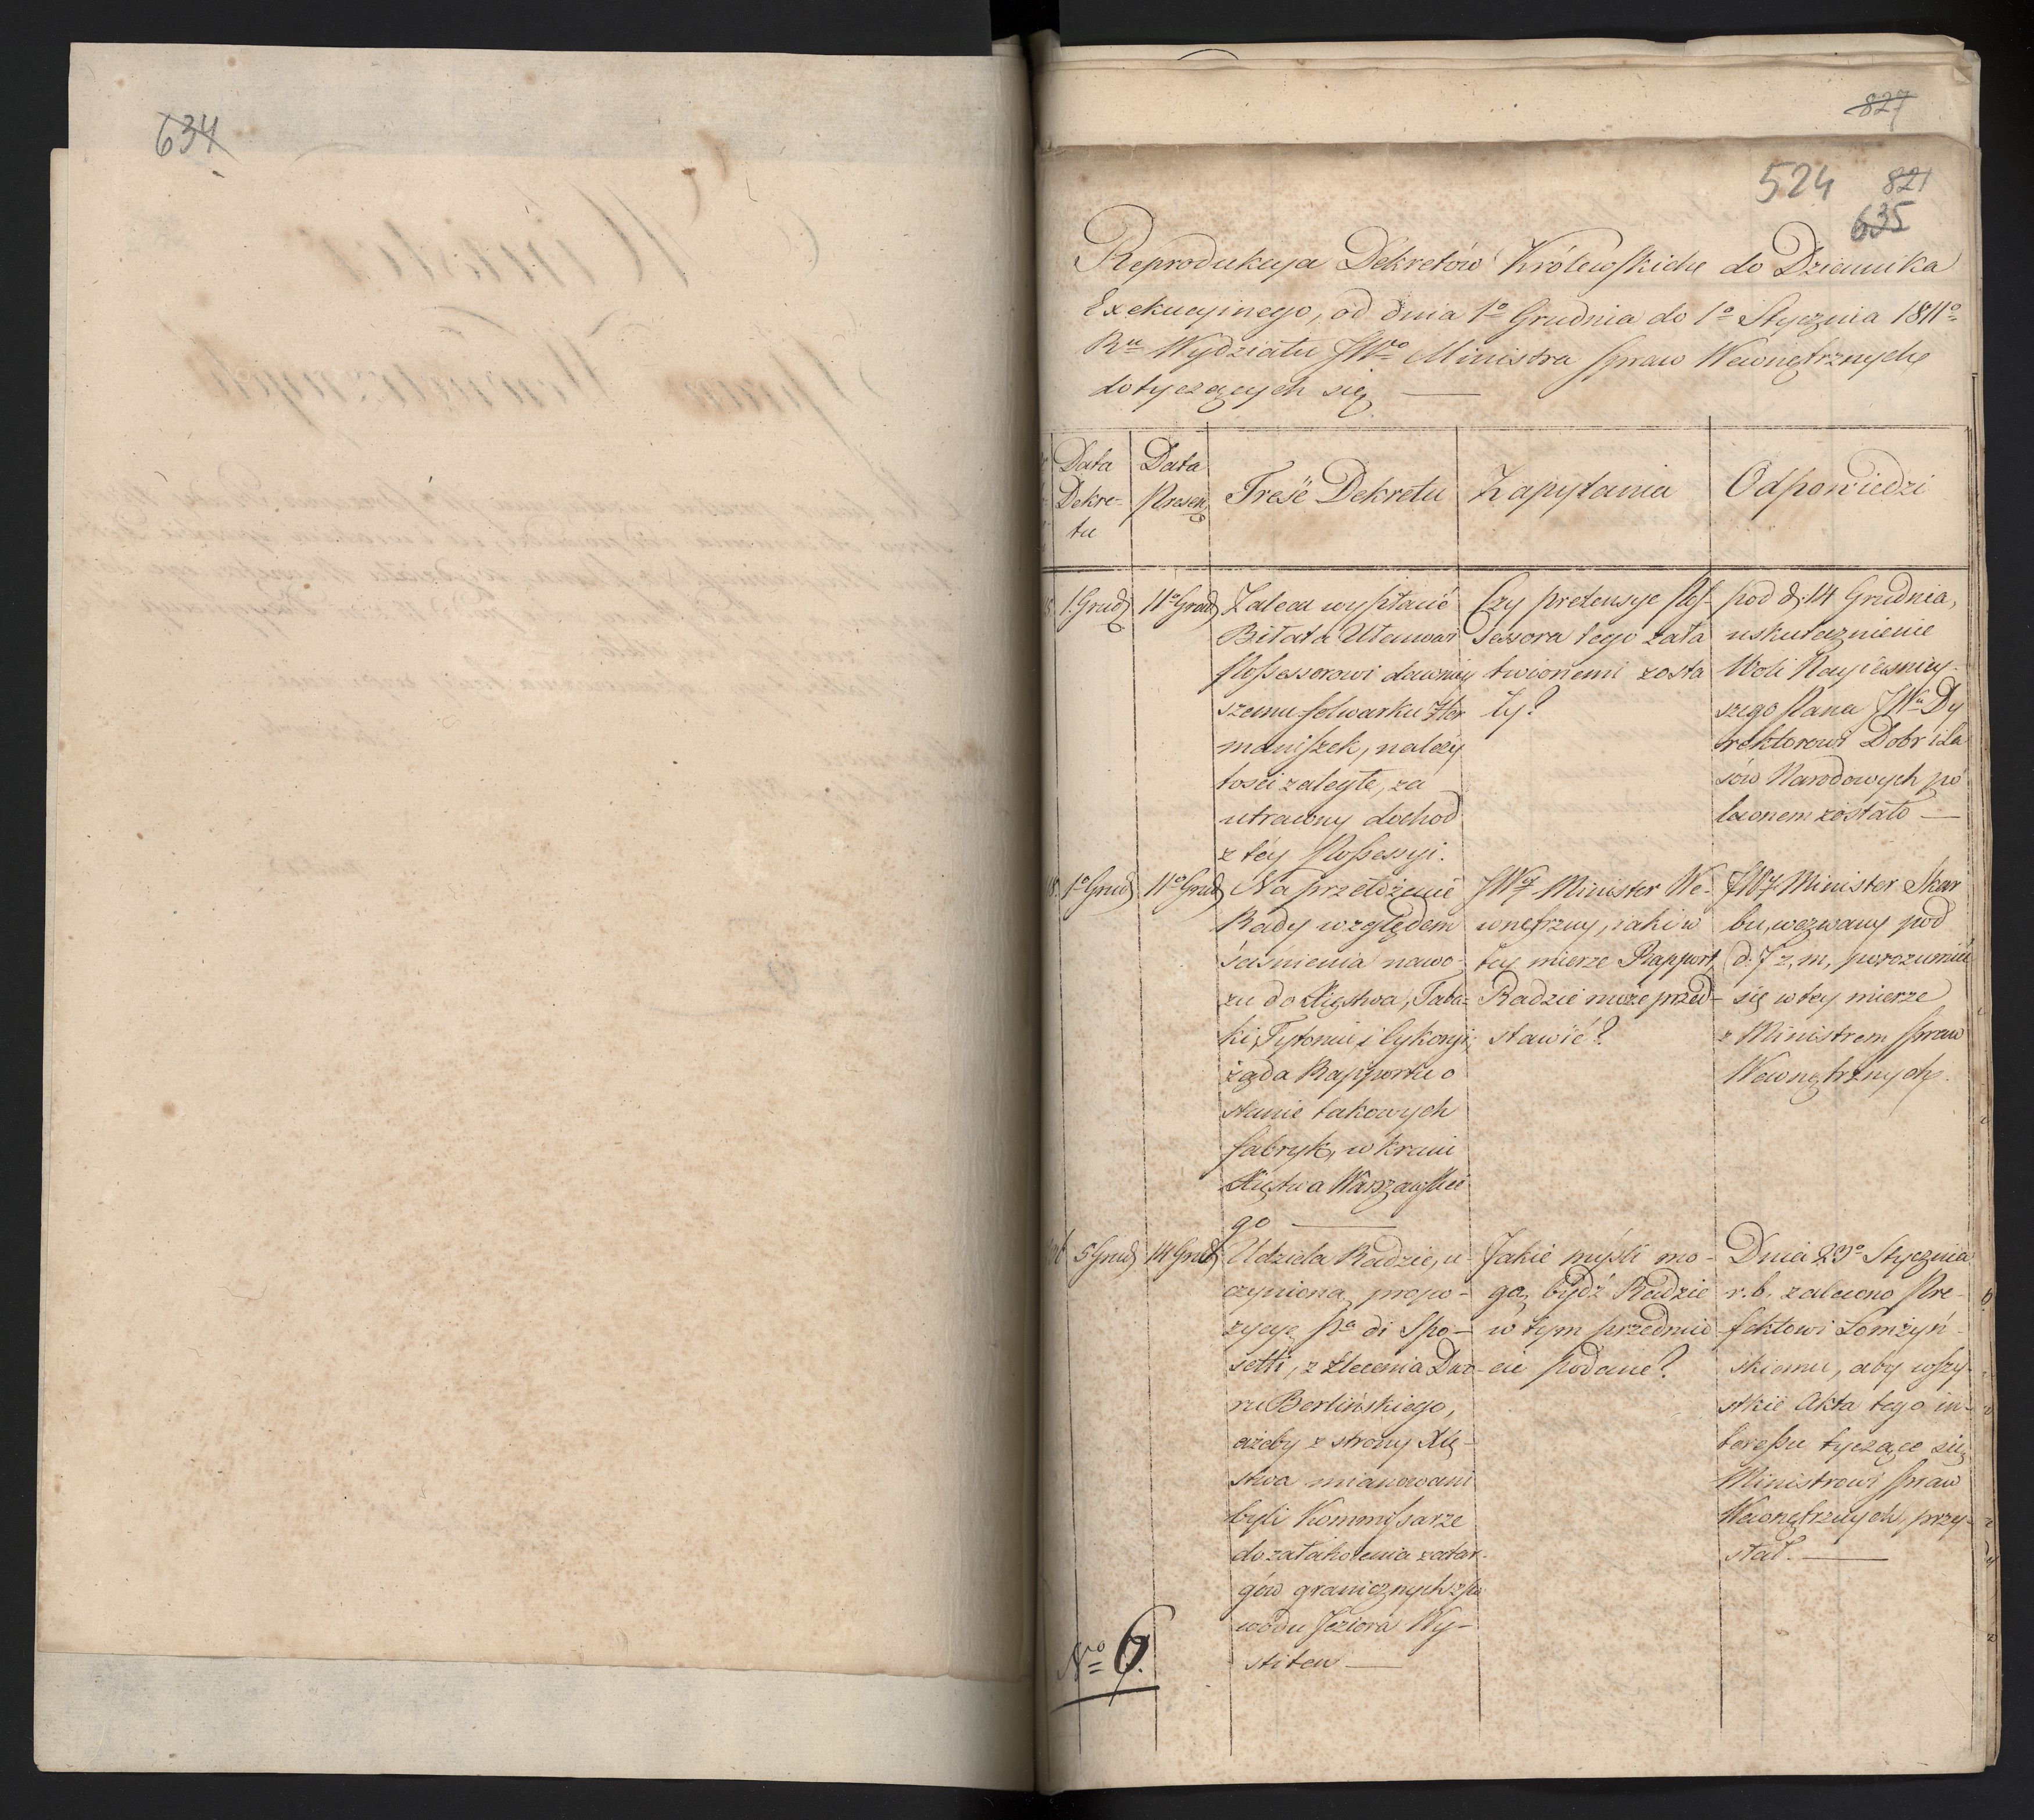 634
827
524 821
635
Reprodukcya Dekretów Królewskich do Dziennika
Exekucyinego, od dnia 1º Grudnia do 1º Stycznia 1811º
Ru Wydziału JWo Ministra Spraw Wewnętrznych
dotyczących się —
Data
Dekre-
tu
Data
Presen
Treść Dekretu
Zapytania
Odpowiedzi
1. Grud
11º Grud
Zaleca wypłacić
Bilata Utenwar
Possessorowi dawniey
szemu folwarku Her
maniszek, należy
tości zaległe, za
utracony dochod
z téy Possessyi.
Czy pretensye Pos-
sessora tego zała
twionemi zosta
ły?
pod d. 14 Grudnia,
uskutecznienie
Woli Nayiasniey-
szego Pana JWu Dy
rektorowi Dobr i La
sów Narodowych po
leconem zostało —
1º Grud
11º Grud
Na przełożenie
Rady względem
ścisnienia nawo-
zu do Xięstwa, Taba-
ki, Tytoniu i Cykoryi,
żąda Rapportu o
stanie takowych
fabryk, w kraiu
Xięstwa Warszawskie
go —
JW Minister We-
wnętrzny, iaki w
tey mierze Rapport,
Radzie może przed-
stawić?
JW Minister Skar
bu, wezwany pod
d. 7 z. m. porozumieć
się w tey mierze
z Ministrem Spraw
Wewnętrznych.
5 Grud
14 Grud
Udziela Radzie, u-
czynioną propo-
zycyę Pa di Spo-
setti, z zlecenia Dwo
ru Berlińskiego,
ażeby z strony Xię-
stwa mianowani
byli Kommissarze
do załatwienia zatar-
gów granicznych z po
wodu Jeziora Wy-
stiten —
Jakie myśli mo-
gą bydź Radzie
w tym przedmio
cie podane?
Dnia 29º Stycznia
r. b. zalecono Pre-
fektowi Łomżyń-
skiemu, aby wszy-
stkie Akta tego in-
teressu tyczące się
Ministrowi Spraw
Wewnętrznych, przy-
słał. —
Nro 6.